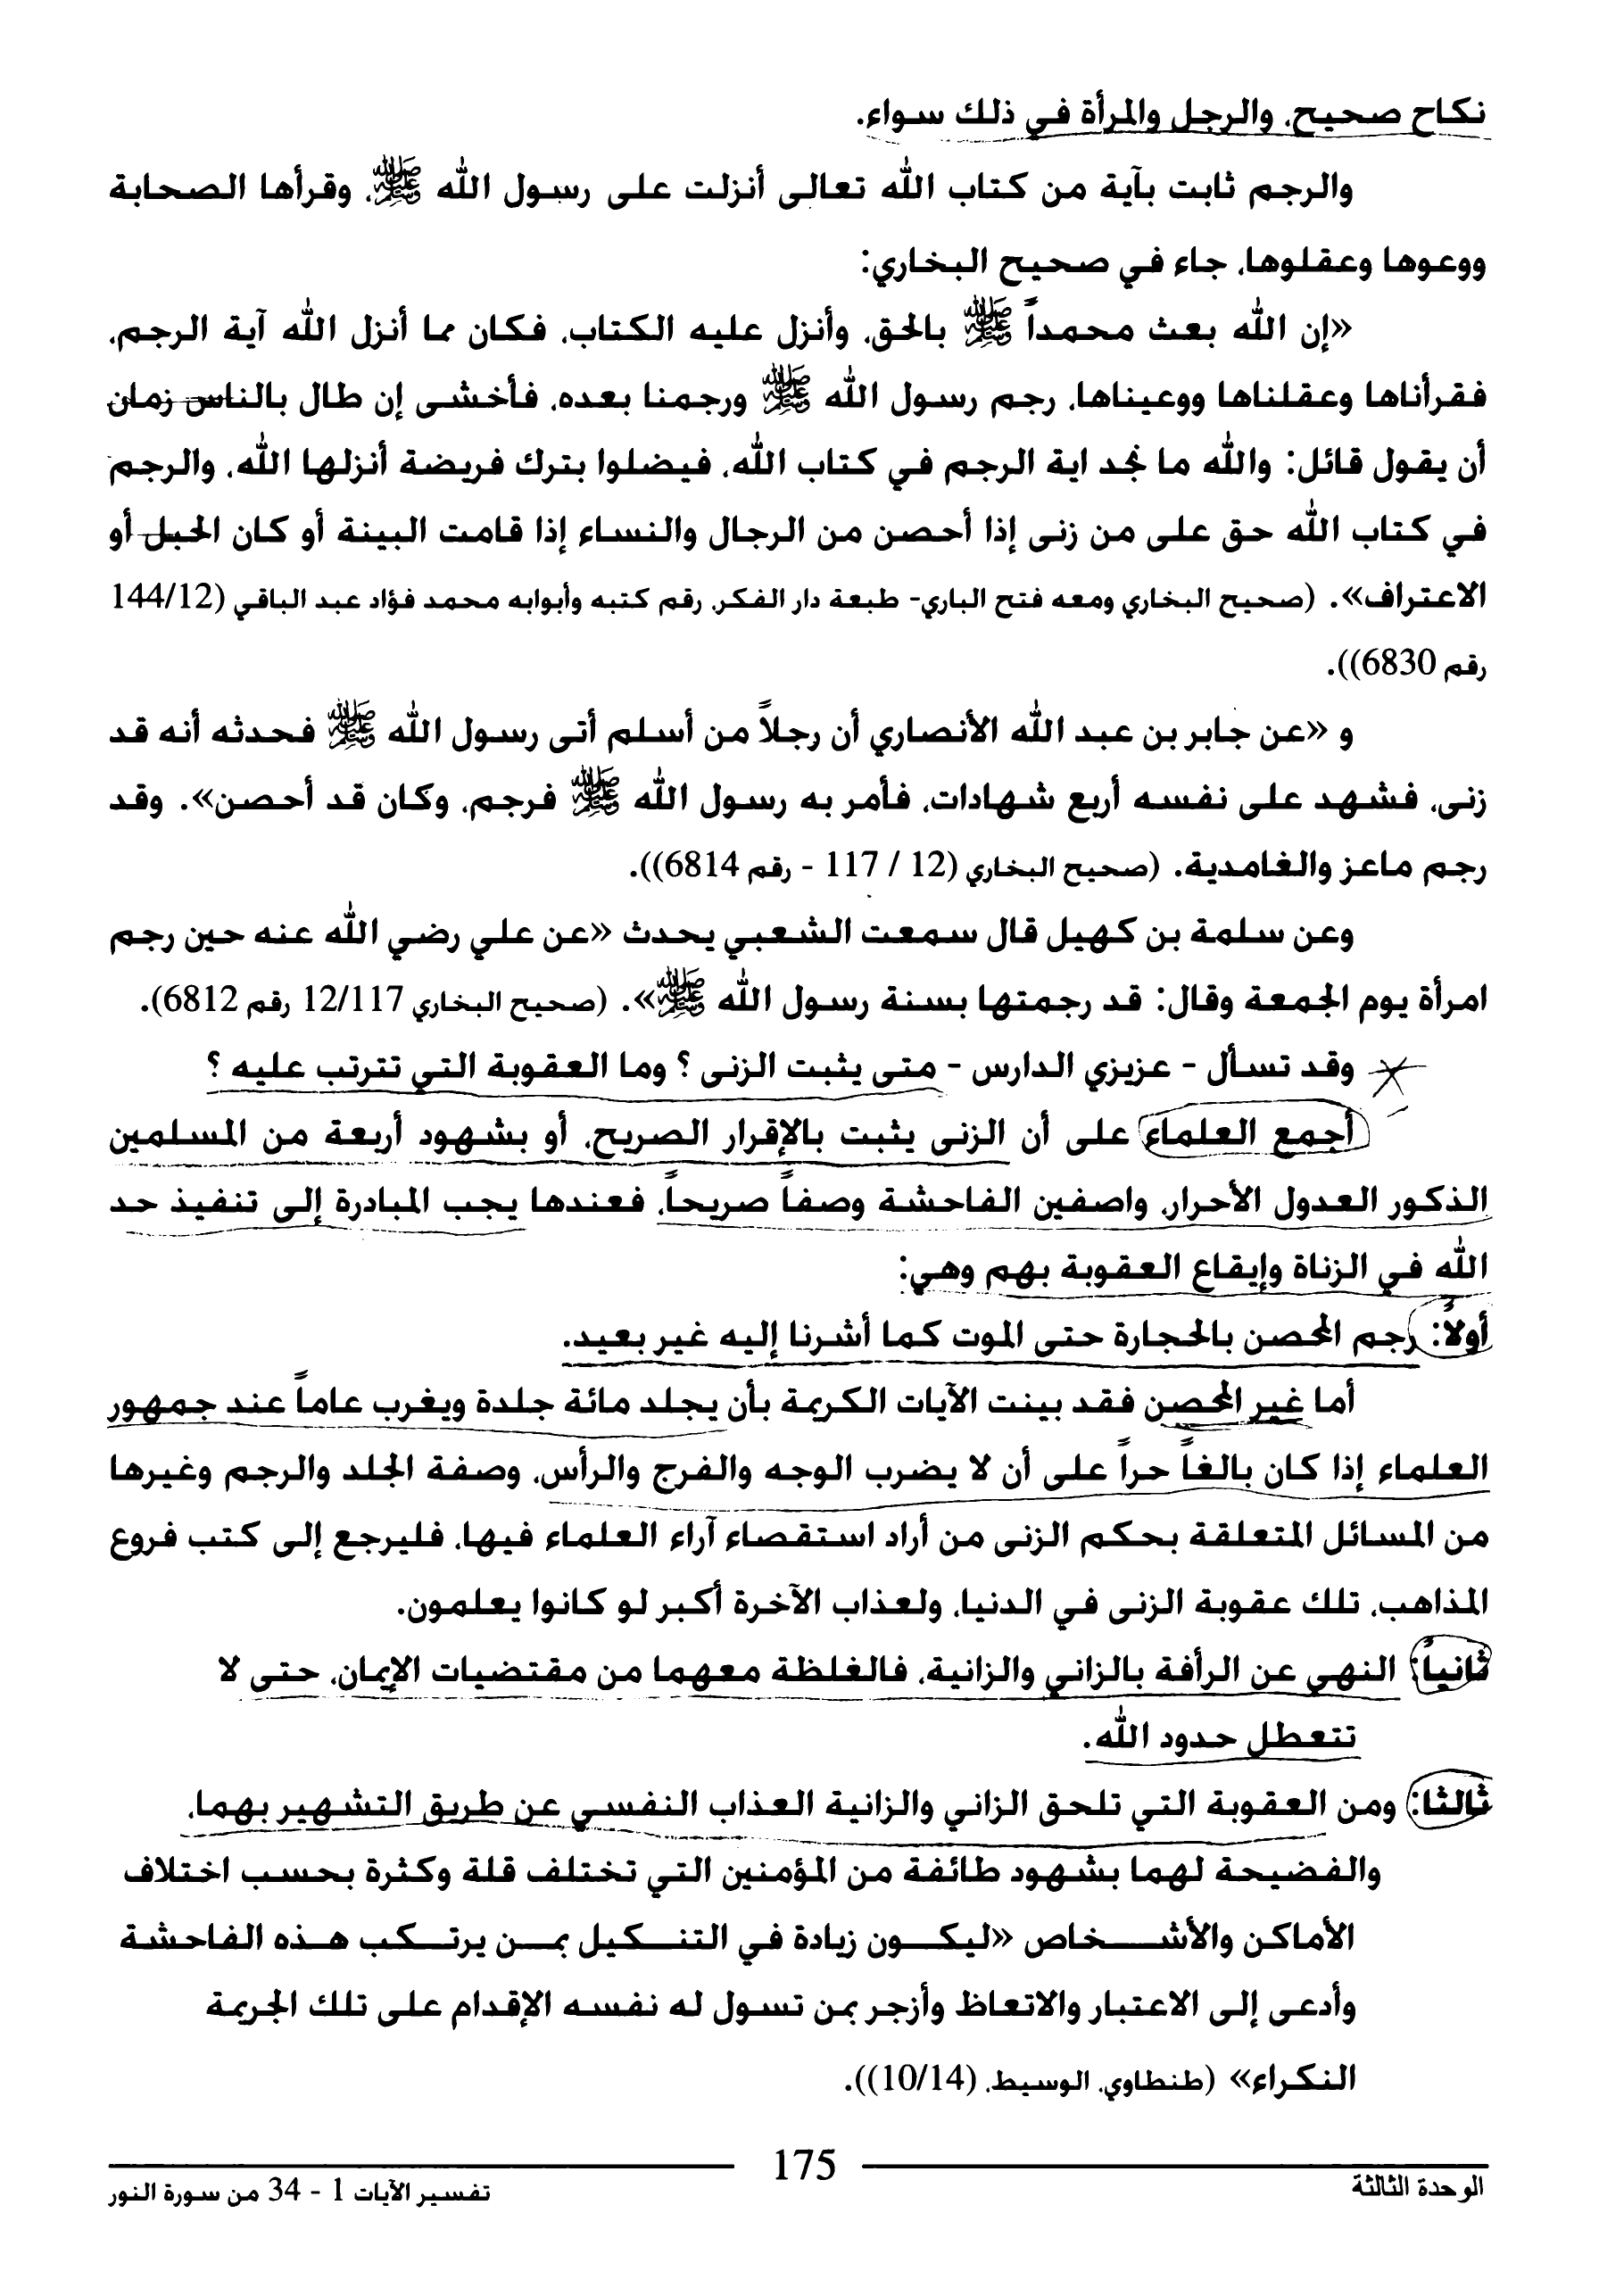 نكاح صحيح، والرجل والمرأة في ذلك سواء.
والرجم ثابت بآية من كتاب الله تعالى أنزلت على رسول الله ﷺ، وقرأها الصحابة
ووعوها وعقلوها، جاء في صحيح البخاري:
«إن الله بعث محمداً ﷺ بالحق، وأنزل عليه الكتاب، فكان مما أنزل الله آية الرجم،
فقرأناها وعقلناها ووعيناها، رجم رسول الله ﷺ ورجمنا بعده، فأخشى إن طال بالناس زمان
أن يقول قائل: والله ما نجد اية الرجم في كتاب الله، فيضلوا بترك فريضة أنزلها الله، والرجم
في كتاب الله حق على من زنى إذا أحصن من الرجال والنساء إذا قامت البينة أو كان الحبل أو
الاعتراف». (صحيح البخاري ومعه فتح الباري- طبعة دار الفكر، رقم كتبه وأبوابه محمد فؤاد عبد الباقي (144/12
رقم 6830)).
و «عن جابر بن عبد الله الأنصاري أن رجلاً من أسلم أتى رسول الله ﷺ فحدثه أنه قد
زنى، فشهد على نفسه أربع شهادات، فأمر به رسول الله ﷺ فرجم، وكان قد أحصن». وقد
رجم ماعز والغامدية. (صحيح البخاري (12 / 117 - رقم 6814)).
وعن سلمة بن كهيل قال سمعت الشعبي يحدث «عن علي رضي الله عنه حين رجم
امرأة يوم الجمعة وقال: قد رجمتها بسنة رسول الله ﷺ». (صحيح البخاري 12/117 رقم 6812).
وقد تسأل - عزيزي الدارس - متى يثبت الزنى ؟ وما العقوبة التي تترتب عليه ؟
أجمع العلماء على أن الزنى يثبت بالإقرار الصريح، أو بشهود أربعة من المسلمين
الذكور العدول الأحرار، واصفين الفاحشة وصفاً صريحاً، فعندها يجب المبادرة إلى تنفيذ حد
الله في الزناة وإيقاع العقوبة بهم وهي:
أولاً: رجم المحصن بالحجارة حتى الموت كما أشرنا إليه غير بعيد.
أما غير المحصن فقد بينت الآيات الكريمة بأن يجلد مائة جلدة ويغرب عاماً عند جمهور
العلماء إذا كان بالغاً حراً على أن لا يضرب الوجه والفرج والرأس، وصفة الجلد والرجم وغيرها
من المسائل المتعلقة بحكم الزنى من أراد استقصاء آراء العلماء فيها، فليرجع إلى كتب فروع
المذاهب، تلك عقوبة الزنى في الدنيا، ولعذاب الآخرة أكبر لو كانوا يعلمون.
ثانياً: النهي عن الرأفة بالزاني والزانية، فالغلظة معهما من مقتضيات الإيمان، حتى لا
تتعطل حدود الله.
ثالثا: ومن العقوبة التي تلحق الزاني والزانية العذاب النفسي عن طريق التشهير بهما،
والفضيحة لهما بشهود طائفة من المؤمنين التي تختلف قلة وكثرة بحسب اختلاف
الأماكن والأشخاص «ليكون زيادة في التنكيل بمن يرتكب هذه الفاحشة
وأدعى إلى الاعتبار والاتعاظ وأزجر بمن تسول له نفسه الإقدام على تلك الجريمة
النكراء» (طنطاوي، الوسيط، (10/14)).
175
الوحدة الثالثة
تفسير الآيات 1 - 34 من سورة النور